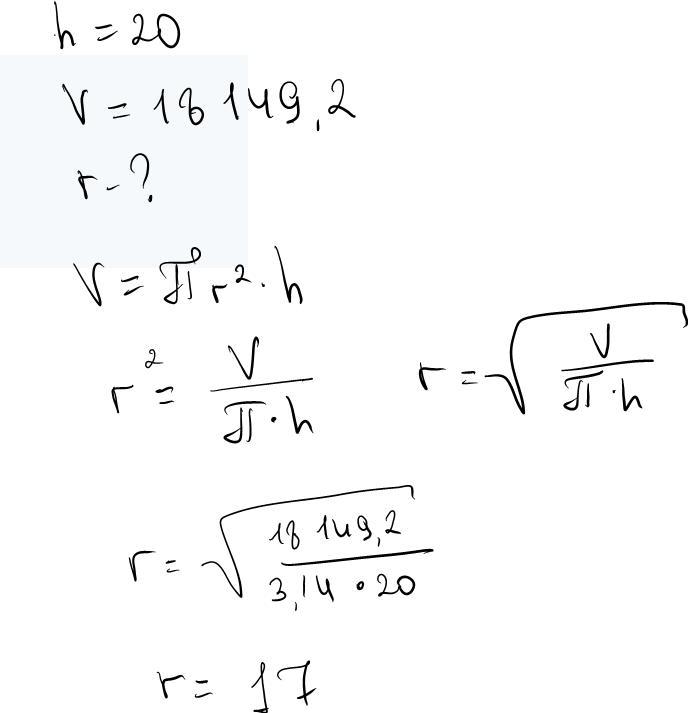 h = 20
V = 18 149,2
r - ?
V = π r² · h
r² = V / π · h
r = √(V / π · h)
r = √(18 149,2 / 3,14 · 20)
r = 17